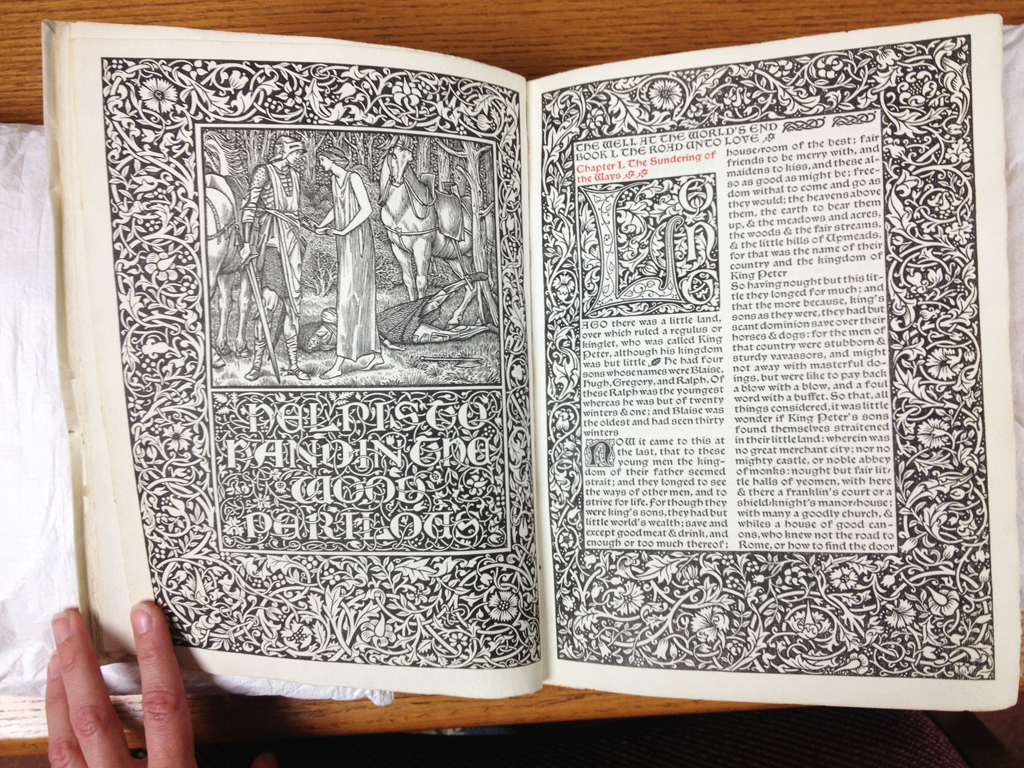 HELP IS TO
HAND IN THE
WOOD
PERILOUS
THE WELL AT THE WORLD'S END
BOOK I. THE ROAD UNTO LOVE
Chapter I. The Sundering of
the Ways
LONG
AGO there was a little land,
over which ruled a regulus or
kinglet, who was called King
Peter, although his kingdom
was but little. He had four
sons whose names were Blaise,
Hugh, Gregory, and Ralph. Of
these Ralph was the youngest
whereas he was but of twenty
winters & one; and Blaise was
the oldest and had seen thirty
winters
NOW it came to this at
the last, that to these
young men the king-
dom of their father seemed
strait; and they longed to see
the ways of other men, and to
strive for life. For though they
were king's sons, they had but
little world's wealth; save and
except good meat & drink, and
enough or too much thereof;
house-room of the best; fair
friends to be merry with, and
maidens to kiss, and these al-
so as good as might be; free-
dom withal to come and go as
they would; the heavens above
them, the earth to bear them
up, & the meadows and acres,
the woods & the fair streams,
& the little hills of Upmeads,
for that was the name of their
country and the kingdom of
King Peter
So having nought but this lit-
tle they longed for much; and
that the more because, king's
sons as they were, they had but
scant dominion save over their
horses & dogs: for the men of
that country were stubborn &
sturdy vavassors, and might
not away with masterful do-
ings, but were like to pay back
a blow with a blow, and a foul
word with a buffet. So that, all
things considered, it was little
wonder if King Peter's sons
found themselves straitened
in their little land: wherein was
no great merchant city; nor no
mighty castle, or noble abbey
of monks: nought but fair lit-
tle halls of yeomen, with here
& there a franklin's court or a
shield-knight's manor-house;
with many a goodly church, &
whiles a house of good can-
ons, who knew not the road to
Rome, or how to find the door